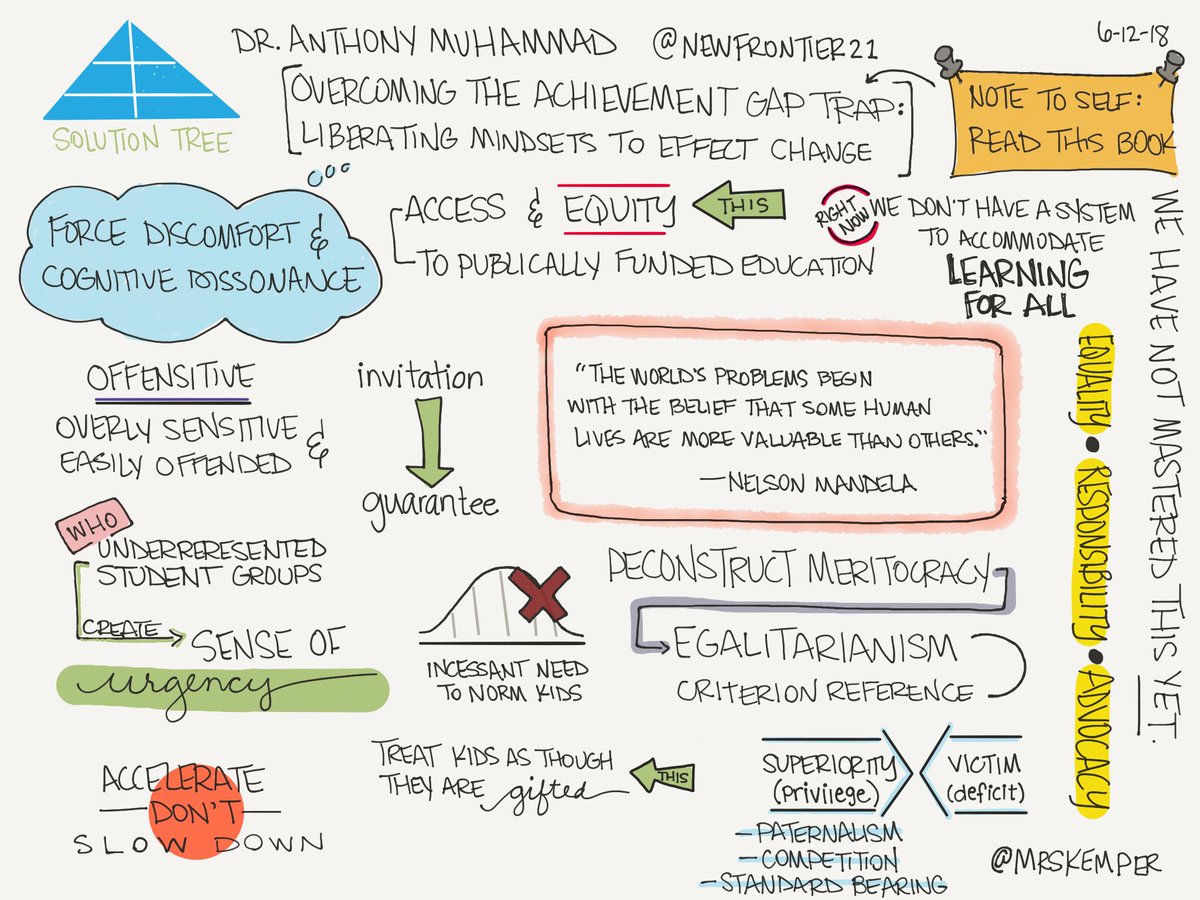 DR. ANTHONY MUHAMMAD @NEWFRONTIER21
6-12-18
SOLUTION TREE
OVERCOMING THE ACHIEVEMENT GAP TRAP:
LIBERATING MINDSETS TO EFFECT CHANGE
NOTE TO SELF:
READ THIS BOOK
FORCE DISCOMFORT &
COGNITIVE DISSONANCE
ACCESS & EQUITY
THIS
TO PUBLICALLY FUNDED EDUCATION
RIGHT
NOW
WE DON'T HAVE A SYSTEM
TO ACCOMMODATE
LEARNING
FOR ALL
WE HAVE NOT MASTERED THIS YET.
EQUALITY • RESPONSIBILITY • ADVOCACY
OFFENSITIVE
OVERLY SENSITIVE &
EASILY OFFENDED
invitation
guarantee
"THE WORLD'S PROBLEMS BEGIN
WITH THE BELIEF THAT SOME HUMAN
LIVES ARE MORE VALUABLE THAN OTHERS."
—NELSON MANDELA
WHO
UNDERREPRESENTED
STUDENT GROUPS
CREATE
SENSE OF
urgency
INCESSANT NEED
TO NORM KIDS
DECONSTRUCT MERITOCRACY
EGALITARIANISM
CRITERION REFERENCE
ACCELERATE
DON'T
SLOW DOWN
TREAT KIDS AS THOUGH
THEY ARE gifted
THIS
SUPERIORITY
(privilege)
VICTIM
(deficit)
- PATERNALISM
- COMPETITION
- STANDARD BEARING
@MRSKEMPER